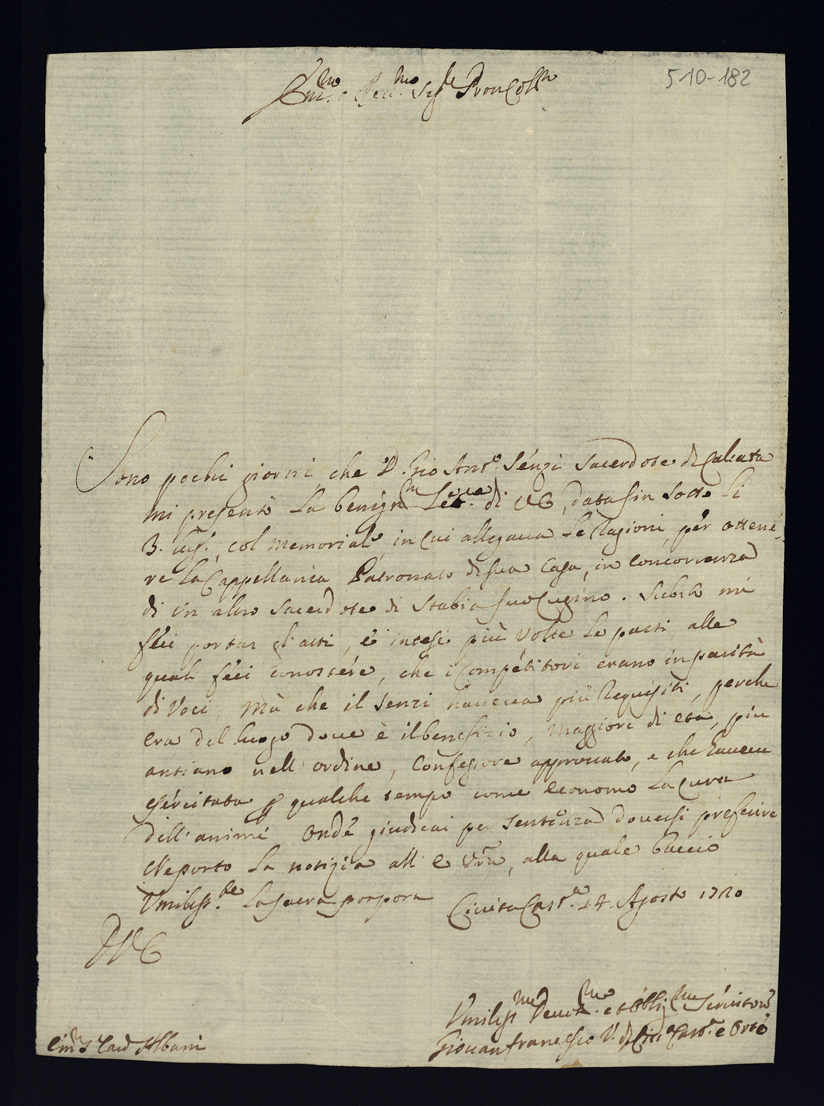 5-10-182
Em.mo e Rev.mo Sig.re Pron Col.mo
Sono pochi giorni che D. Gio Ant.o Senzi Sacerdote di Calcata
mi presentò la benign.ma Let.ra di VE, data sin sotto li
3. , col memoriale, in cui allegava le Ragioni, per ottene-
re la Cappellania Patronato di sua Casa, in concorrenza
di un altro Sacerdote di Stabia suo Cugino. Subito mi
feci portar gl'atti, e intesi più volte le parti alle
quali feci conoscere, che i Competitori erano in parità
di Voci Mà che il Senzi haveva più Requisiti, perche
era del luogo dove è il benefizio, maggiore di età, più
antiano nell'ordine, Confessore approvato, e che haveva
esercitata p qualche tempo come economo la cura
dell'anime Onde giudicai per sentenza doversi preferire
Ne porto la notizia all'E V.ra, alla quale baccio
Umiliss.te la sacra porpora Civita Cast.na 14. Agosto 1720
DVE
Umiliss.mo Devot.mo et Oblig.mo Servitore
Giovan Francesco V. di Città Cast.a e Orte
Em.mo S.r Card Albani